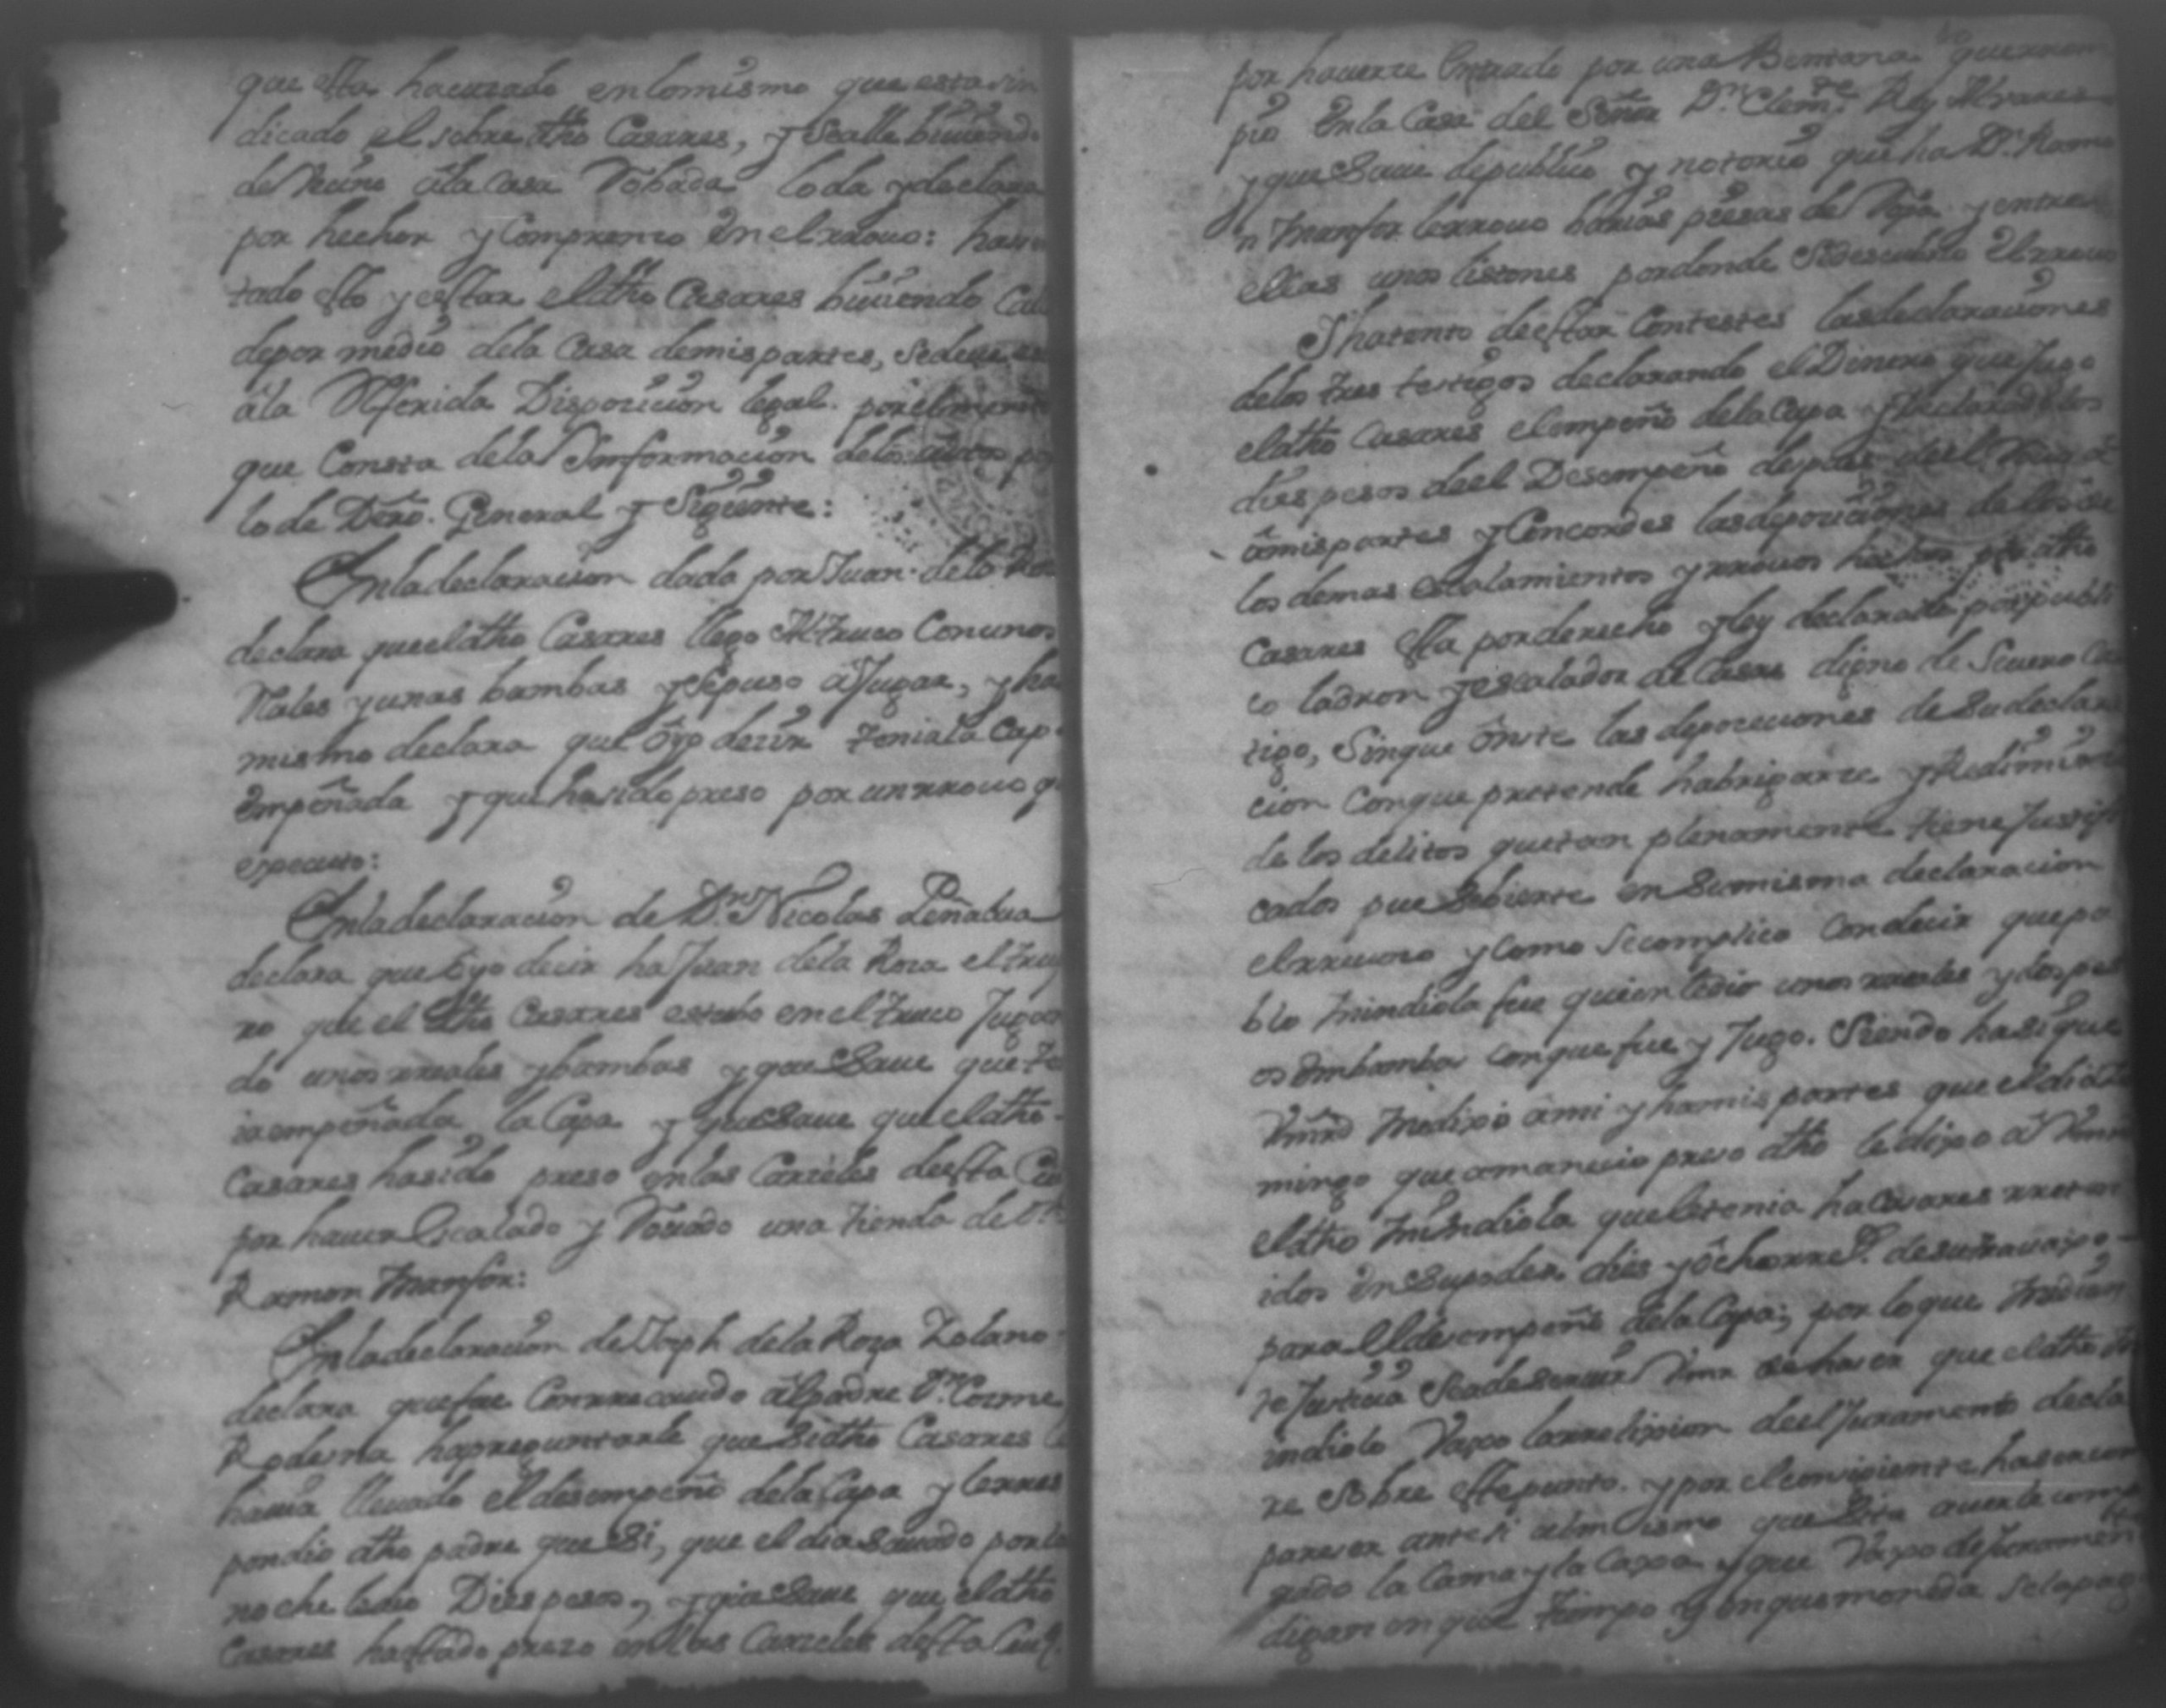 que esta hacuzado enlomismo que esta in
dicado el sobre dho Casares, y sealle biuiendo
de Vecino âla Casa Robada loda y declara
por hechor y Comprenso En elrrouo: hauen
tado esto y estar eldho Casares biuiendo Calle
depor medio dela Casa demispartes, sedeue
âla Referida Disposicion legal. porelmerito
que Consta dela Imformacion delos autos por
lo de Dro. General y Siguiente:
Enladeclaracion dada por Juan dela Rosa
declara queeldho Casares llego Al truco Conunos
Rales yunas bambas ysepuso âJugar, y ha
mismo declara que Oyo desir teniala Capa
Empeñada y que hasido preso por unrrouo q
especuto:
Enladeclaracion de Dn. Nicolas Peñalua
declara que Oyo decir haJuan dela Rosa eltruq
ro que el dho Casares estubo enel truco Jugan
do unos rreales ybambas y que Saue que te
iaempeñada la Capa y queSaue que eldho
Casares hasido preso enlas Carseles desta Ciu
por hauer Escalado y Rouado una tienda de Dn.
Ramon Manfor:
Enladeclaracion deJoseph delaRoza Zolano
declara quefue Conrrecaudo âlpadre Dn. Cosme
Roderna hapreguntarle que Sidho Casares le
hauia lleuado eldesempeño dela Capa y lerres
pondio dho padre que Si, que el dia Sauado porla
noche ledio Dies pesos, y qiaSaue que eldho
Casares haestado prezo enlas Carseles desta Ciud.
por hauerse Entrado por una Bentana querrom
pio Enla Casa del Señor Dn. Clemte. Rey Albares
y que Saue depublico y notorio que ha Dn. Ramo
n Manfor lerrouo barias piesas de Ropa y entre
ellas unos listones pordonde Sedescubrio Elrrouo
Ihatento deestar Contestes lasdeclaraciones
delos tres testigos declarando el Dinero que Jugo
eldho Casares elempeño dela Capa y declarado los
dies pesos deel Desempeño depues deel Rouo
âmispartes y Concordes lasdeposiciones de los
los demas escalamientos yrrouos hechos por dho
Casares esta porderecho yley declarado por publi
co ladron yescalador de Casas digno de Seuero Cas
tigo, Sinque Obste las deposiciones de Sudeclara
cion Conque pretende habrigarse y Redimirse
de los delitos quetan plenamente tiene Justifi
cados pue Sebierte en Sumisma declaracion
elrrouo y Como Secomplico Condecir que pa
blo Mindiola fue quien ledio unos rreales ydos pes
os Enbamba Conque fue y Jugo. Siendo hasique
Vmrd Medixo ami yhamis partes que eldia do
mingo que amanecio preso dho ledixo â Vmrd
eldho Mindiola que letenia haCasares rreten
idos En Supoder dies yôcho rre. desutrauajo
para Eldesempeño dela Capa; por loque Median
te Justicia Seade Seruir Vmr de haser que eldho M
indiola Vajo larrelixion deelJuramento decla
re Sobre este punto. y por elconsiguiente hasercom
pareser ante si almismo que hauerle comp
rado la Cama y la Caxa y que Vajo deJuramento
digan en que tiempo y En que moneda Selapag